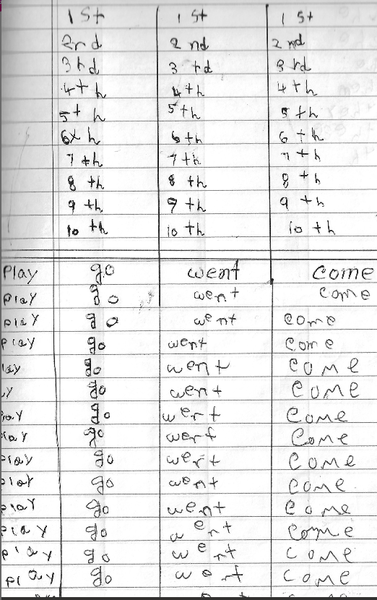 1st 1st 1st
2rd 2nd 2nd
3rd 3rd 3rd
4th 4th 4th
5th 5th 5th
6xh 6th 6th
7th 7th 7th
8th 8th 8th
9th 9th 9th
10th 10th 10th
Play go went come
play go went come
play go went come
play go went come
lay go went come
y go went come
lay go wert come
lay go wert come
play go wert come
play go went come
play go went come
play go wert come
play go wert come
play go went come